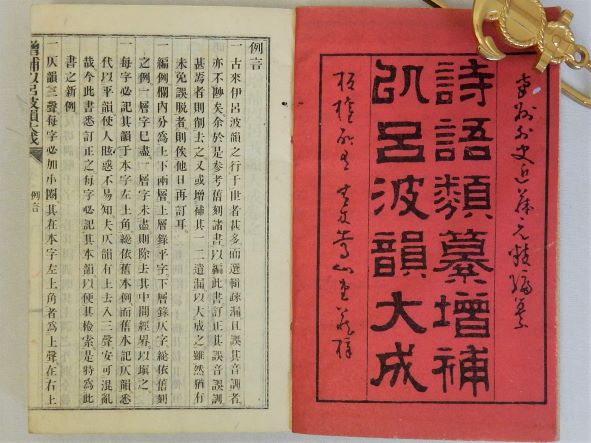 南州外史近藤元粋編纂
詩語類纂增補
㠯呂波韻大成
板權所有 青木嵩山堂藏梓
例言
一古來伊呂波韻之行于世者甚多而選輯疎漏且誤其音訓者
亦不尠矣余於是參考舊刻諸書以編此書訂正其誤音誤訓
甚焉者則削去之又或增補其一二遺漏以大成之雖然猶有
未免誤脫者則俟他日再訂耳
一編例欄內分爲上下兩層上層錄平字下層錄仄字總依舊刻
之例一層字已盡一層字未盡則除去其中間經界以塡之
一每字必記其韻于本字左上角總依舊本例而舊本記仄韻悉
代以平韻使人眩惑不易知夫仄韻有上去入三聲安可混亂
哉今此書悉訂正之每字必記其本韻以便其檢索是特爲此
書之新例
一仄韻三聲每字必加小圈其在本字左上角者爲上聲在右上
增補以呂波韻大成
例言